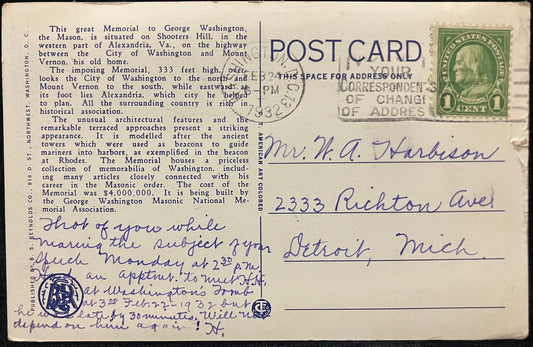 This great Memorial to George Washington,
the Mason, is situated on Shooters Hill, in the
western part of Alexandria, Va., on the highway
between the City of Washington and Mount
Vernon, his old home.
The imposing Memorial, 333 feet high, over-
looks the City of Washington to the north and
Mount Vernon to the south, while eastward at
its foot lies Alexandria, which city he helped
to plan. All the surrounding country is rich in
historical association.
The unusual architectural features and the
remarkable terraced approaches present a striking
appearance. It is modelled after the ancient
towers which were used as beacons to guide
mariners into harbors, as exemplified in the beacon
at Rhodes. The Memorial houses a priceless
collection of memorabilia of Washington, includ-
ing many articles closely connected with his
career in the Masonic order. The cost of the
Memorial was $4,000,000. It is being built by
the George Washington Masonic National Me-
morial Association.
Thot of you while
nearing the subject of your
speech Monday at 2:30 P.M.
Had an apptmt. to meet H.H.
at Washington's Tomb
at 3:00 Feb.-22-1932 but
he was late by 30 minutes. Will not
depend on him again! H.
PUBLISHED BY B. S. REYNOLDS CO., 918 D ST., NORTHWEST, WASHINGTON, D. C.
AMERICAN ART COLORED
POST CARD
THIS SPACE FOR ADDRESS ONLY
WASHINGTON, D.C. 13
FEB 24
5-PM
1932
YOUR
CORRESPONDENTS
OF CHANGE
OF ADDRESS
UNITED STATES POSTAGE
FRANKLIN
1 CENT 1
Mr. W. A. Harbison
2333 Richton Ave
Detroit, Mich.